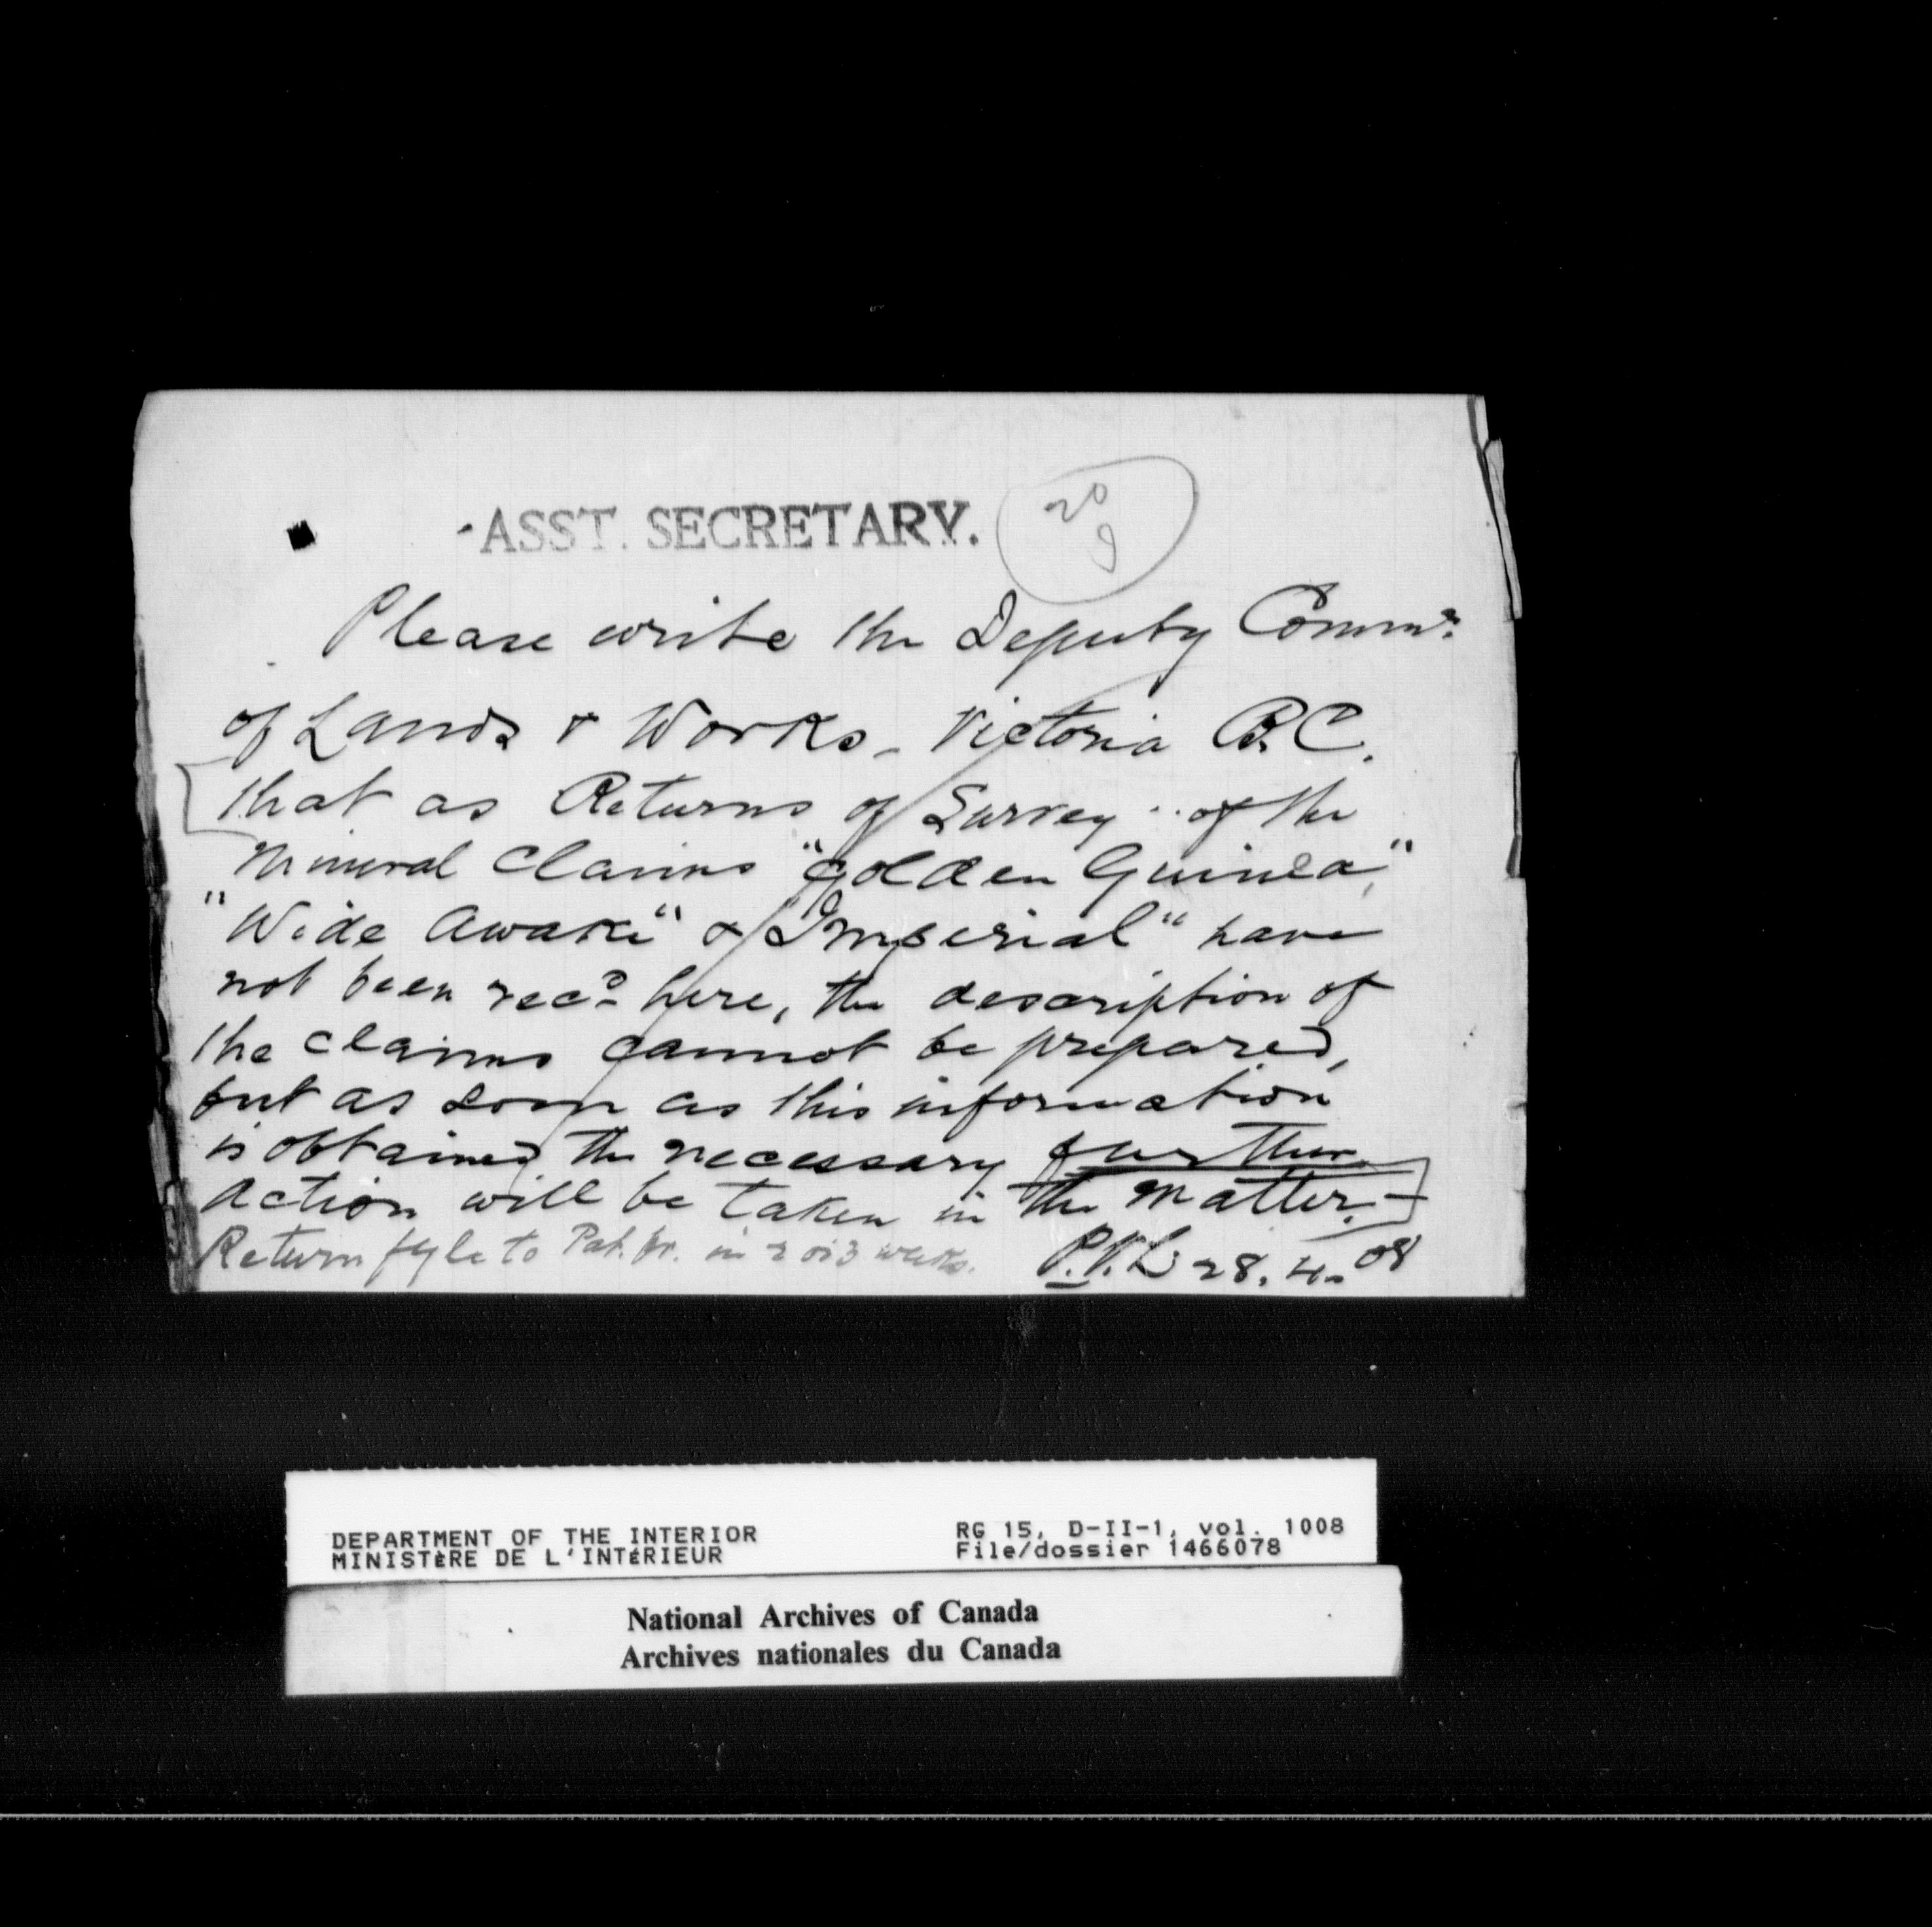 ASST. SECRETARY.
20
9
Please write the Deputy Commr.
of Lands & Works - Victoria B.C.
that as Returns of Survey of the
Mineral Claims "Golden Guinea,"
"Wide Awake" & "Imperial" have
not been recd here, the description of
the claims cannot be prepared,
but as soon as this information
is obtained the necessary further
action will be taken in the matter.
Return fyle to Pat. Br. in 2 or 3 weeks.
28.4.08
DEPARTMENT OF THE INTERIOR
MINISTÈRE DE L'INTÉRIEUR
RG 15, D-II-1, vol. 1008
File/dossier 1466078
National Archives of Canada
Archives nationales du Canada